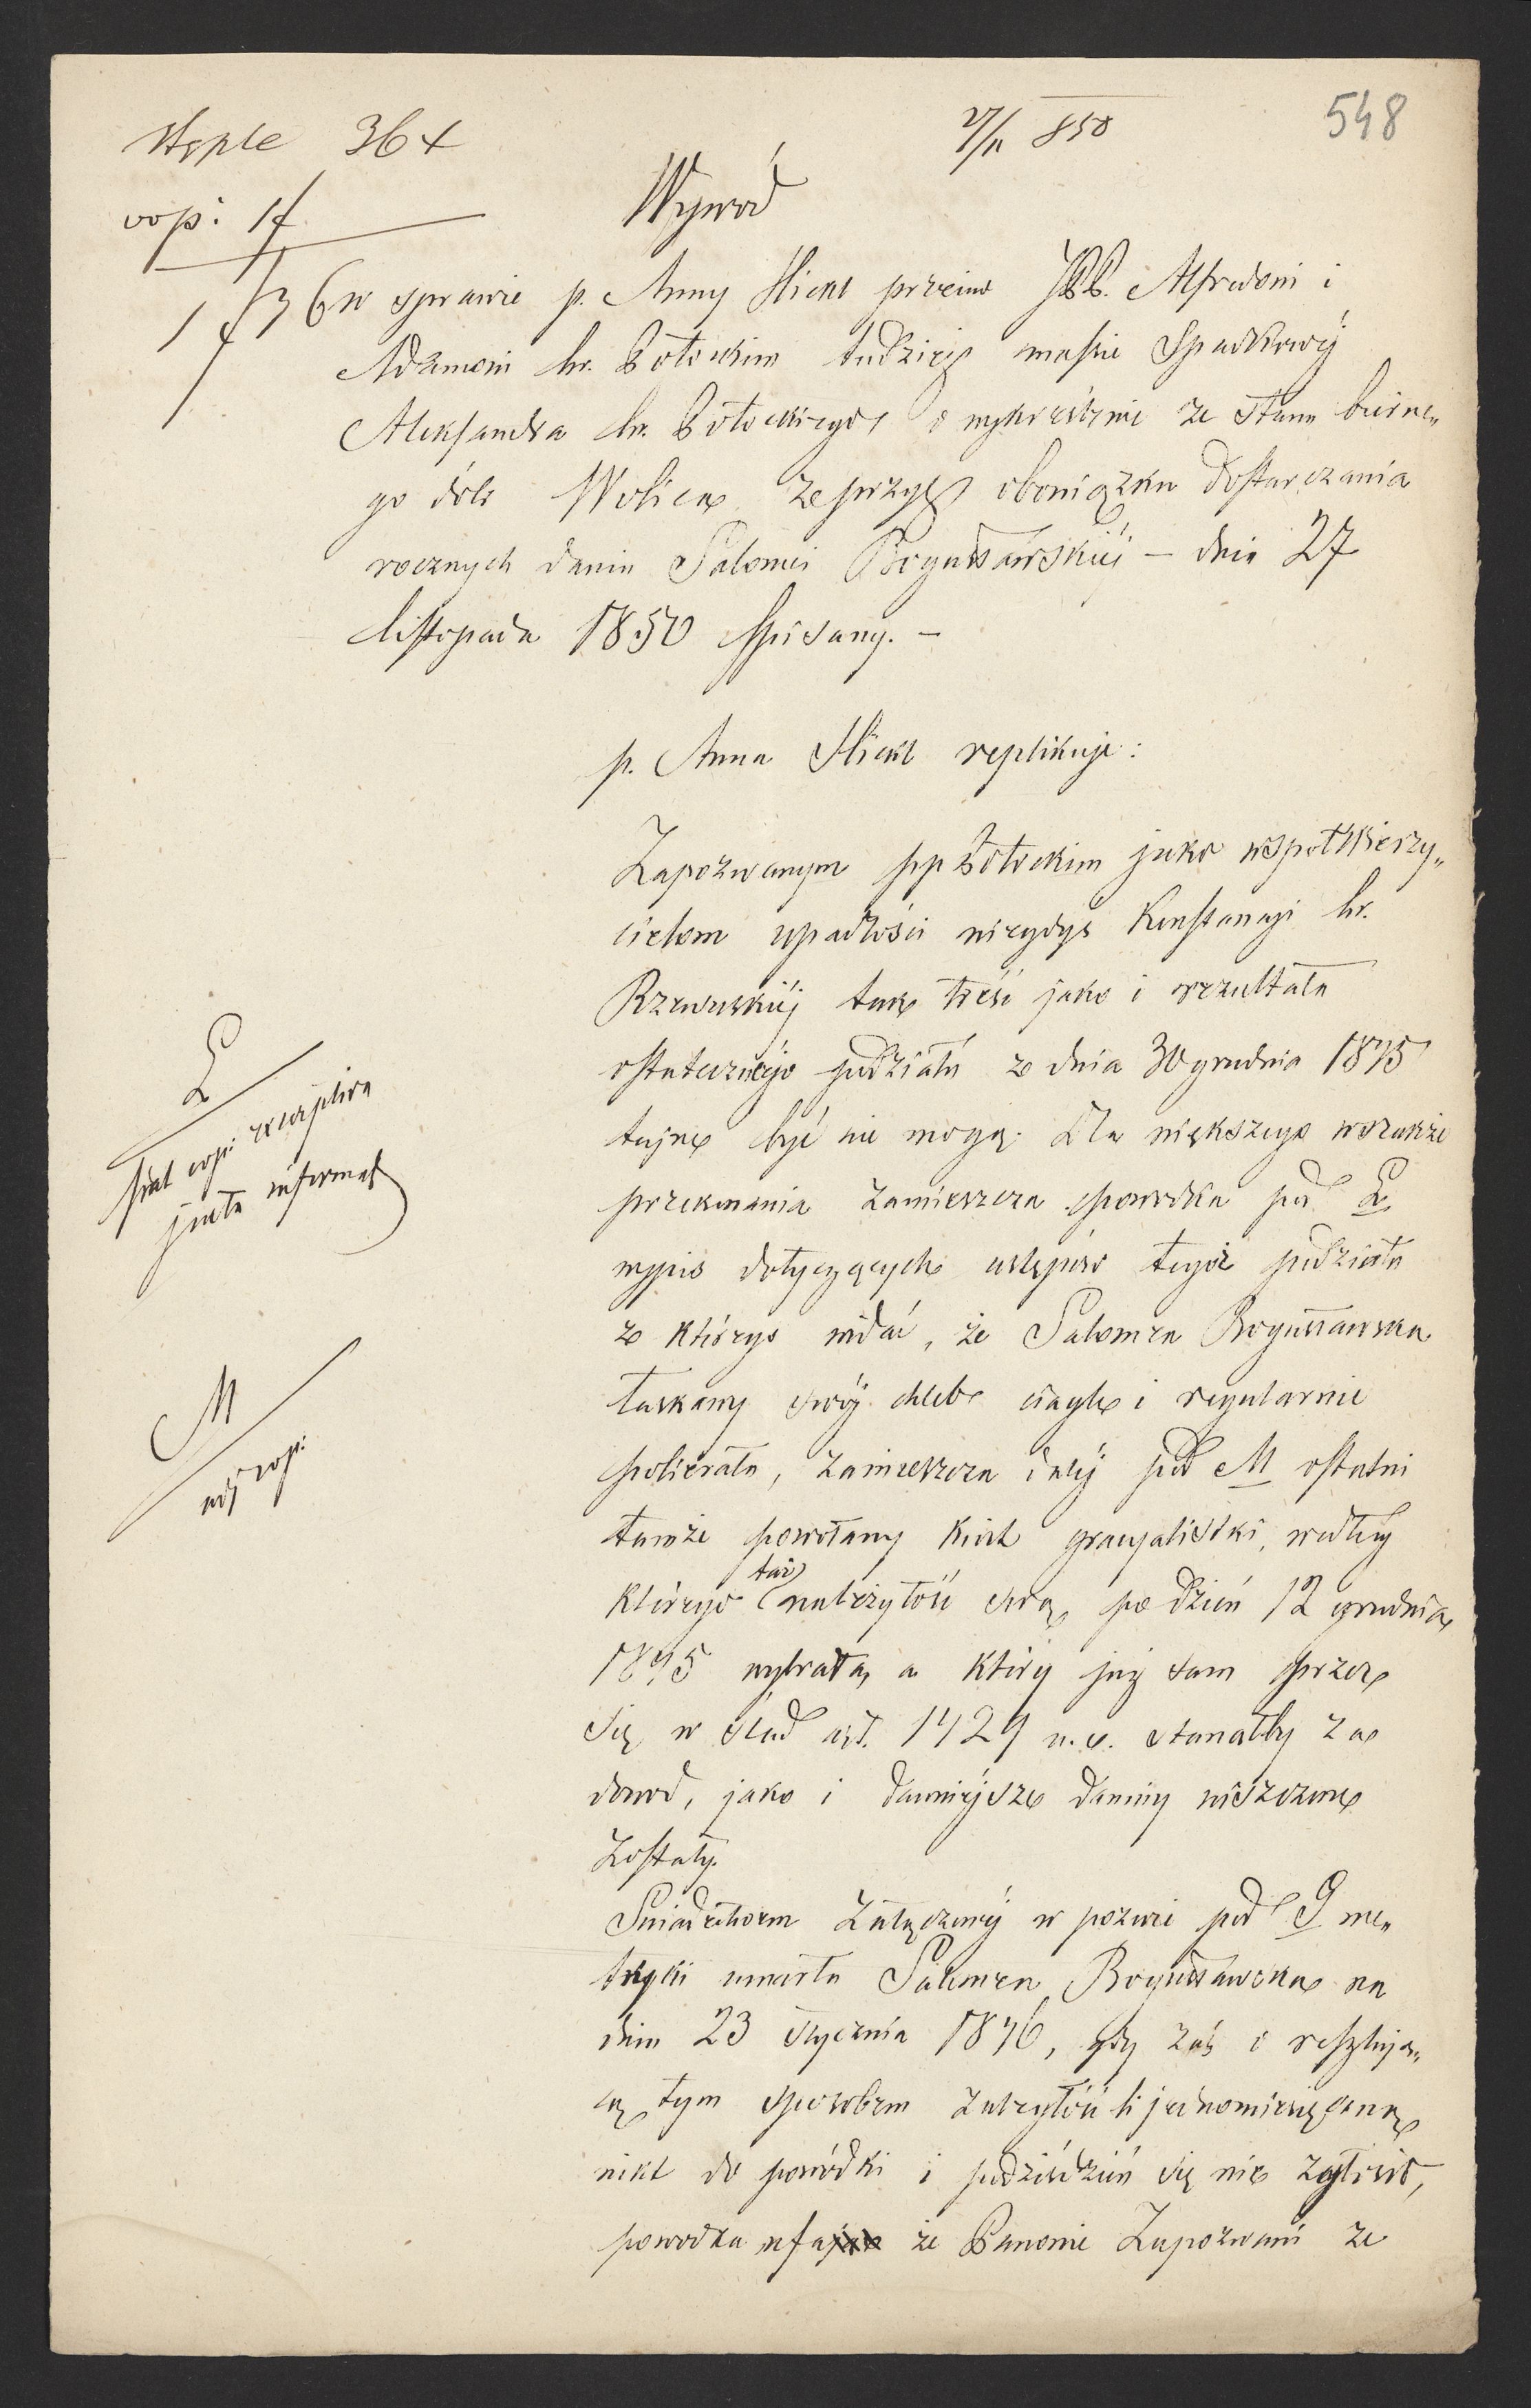 548
27/11 850
stęple 36 x
vop: 1 f
1 f 36
Wywód
w sprawie p. Anny Hickl przeciw JJPP. Alfredowi i
Adamowi hr. Potockim tudzież massie spadkowéj
Aleksandra hr. Potockiego, o wykreślenie ze stanu bierne„
go dóbr Wolica zeprzył obowiązku dostarczania
rocznych danin Salomei Bogusławskiéj – dnia 27
listopada 1850 spisany. –
p. Anna Hickl replikuje:
Zapozwanym pp Potockim jako współwierzy„
cielom upadłości niegdyś Konstancyi hr.
Rzewuskiéj tak treść jako i rezultata
ostatecznégo podziału z dnia 30 grudnia 1845
tajne być nie mogą. Dla większego wszakże
przekonania zamieszcza powodka pod L
wypis dotyczących ustępów tegoż podziału
z którego widać, że Salomea Bogusławska
łaskawy swój chleb ciągle i regularnie
pobierała, zamieszcza daléj pod M ostatni
tamże powołany kwit gracyalistki, według
którego taż należytość swą po dzień 12 grudnia
1845 wybrała, a który już sam przez
się w ślad ust. 1429 u. c. stanąłby za
dowod, jako i dawniejsze daniny uiszczone
zostały.
Świadectwem załączonéj w pozwie pod G me„
tryki umarła Salomea Bogusławska na
dniu 23 stycznia 1846, gdy zaś o resztują„
cą tym sposobem zaległość li jednomiesięczną
nikt do powódki i podziśdzień się nie zgłosił,
powodka ufa że Panowie Zapozwani ze
L
prat copi: exceptiva
juxta informat
M
adj copi: